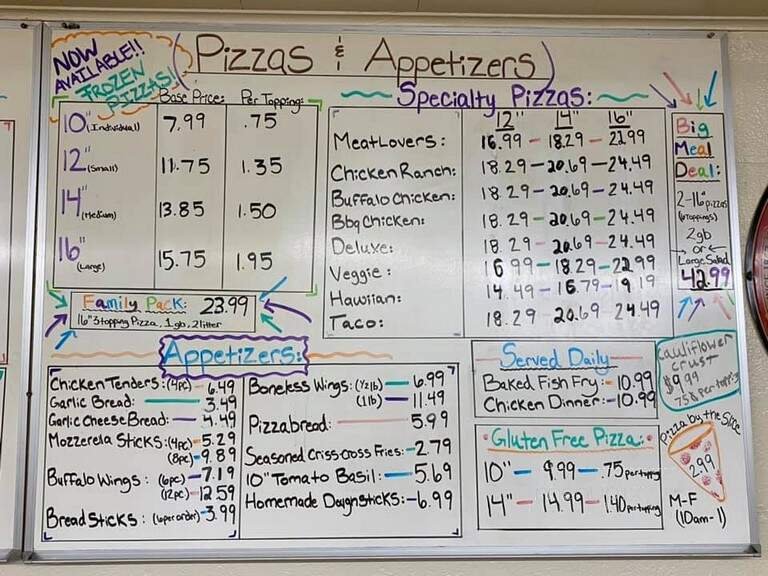 NOW
AVAILABLE!!
FROZEN
PIZZAS!
Pizzas & Appetizers
Base Price: Per Topping:
10" (Individual) 7.99 .75
12" (Small) 11.75 1.35
14" (Medium) 13.85 1.50
16" (Large) 15.75 1.95
Family Pack: 23.99
16" 3 topping Pizza, 1 gb, 2 liter
Specialty Pizzas:
12" 14" 16"
MeatLovers: 16.99 - 18.29 - 22.99
Chicken Ranch: 18.29 - 20.69 - 24.49
Buffalo Chicken: 18.29 - 20.69 - 24.49
Bbq Chicken: 18.29 - 20.69 - 24.49
Deluxe: 18.29 - 20.69 - 24.49
Veggie: 16.99 - 18.29 - 22.99
Hawiian: 14.49 - 16.79 - 19.19
Taco: 18.29 - 20.69 - 24.49
Big
Meal
Deal:
2-16" pizzas
(6 toppings)
2gb
or
Large Salad
42.99
Appetizers:
Chicken Tenders: (4pc) - 6.49
Garlic Bread: 3.49
Garlic Cheese Bread: 4.49
Mozzerela Sticks: (4pc) - 5.29
(8pc) - 9.89
Buffalo Wings: (6pc) - 7.19
(12pc) - 12.59
Bread Sticks: (6 per order) - 3.99
Boneless Wings: (1/2 lb) - 6.99
(1 lb) - 11.49
Pizzabread: 5.99
Seasoned Criss-cross Fries: - 2.79
10" Tomato Basil: - 5.69
Homemade Doughsticks: - 6.99
Served Daily
Baked Fish Fry: - 10.99
Chicken Dinner: - 10.99
Gluten Free Pizza:
10" - 9.99 - .75 per topping
14" - 14.99 - 1.40 per topping
Cauliflower
crust
$9.99
.75¢ per topping
Pizza by the Slice
2.99
M-F
(10am-1)